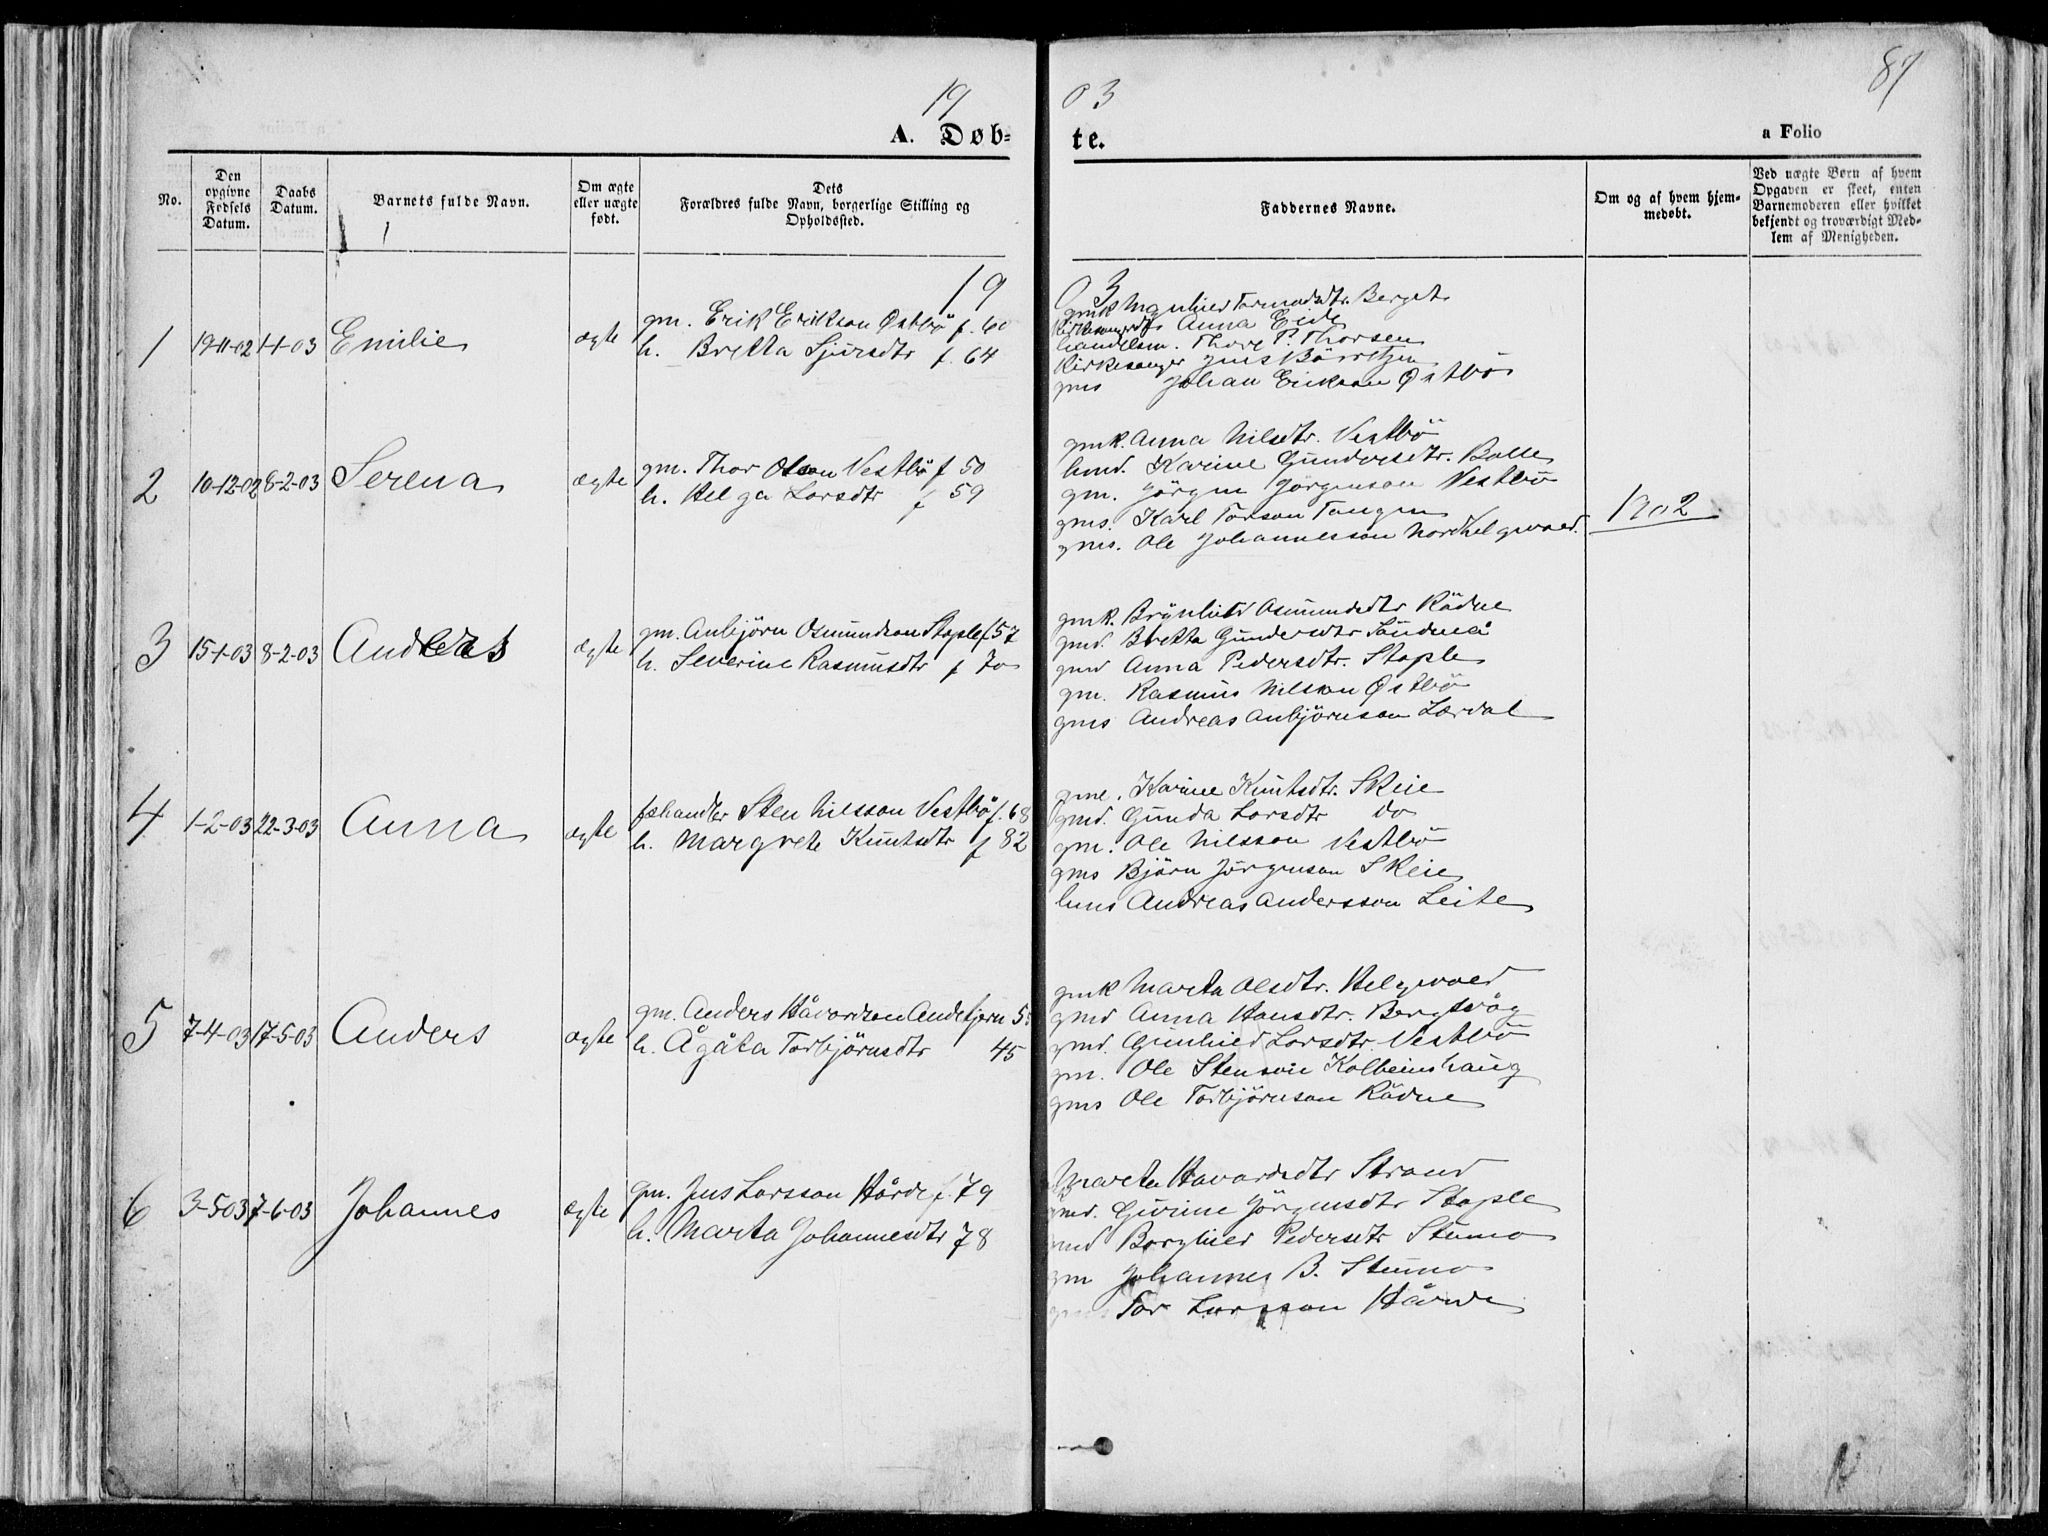 19
03
87
A. Døb=
te.
a Folio
No.
Den opgivne Fødsels Datum.
Daabs Datum.
Barnets fulde Navn.
Om ægte eller uægte født.
Dets Forældres fulde Navn, borgerlige Stilling og Opholdssted.
Faddernes Navne.
Om og af hvem hjemmedøbt.
Ved uægte Børn af hvem Opgaven er skeet, enten Barnemoderen eller hvilket bekjendt og troværdigt Medlem af Menigheden.
19
03
1 19-11-02 1-1-03 Emilie ægte gm. Erik Erikson Østbö f. 60
h. Bretta Sjursdtr f. 64
gmk Ingebied Tormodsdtr. Berget
Anna Eide
handelsm. Thore P. Thorsen
Kirkesanger Jens Börretzen
gms Johan Erikson Østbö
2 10-12-02 8-2-03 Serena ægte gm. Thor Olson Vestbö f 50
h. Helga Larsdtr f 59
gmk. Anna Nilsdtr. Vestbö
hmd. Karine Gundersdtr. Balle
gm. Jörgen Jörgenson Vestbö
gms. Karl Torson Tangen
gms. Ole Johannesson Nordhelgevold.
1902
3 15-1-03 8-2-03 Anders ægte gm. Anbjörn Osmundson Stople f. 57
h. Severine Rasmusdtr f 70
gmk. Brynhild Osmundsdtr Rådne
gmd. Bretta Gundersdtr Sundmå
gmd Anna Pedersdtr. Stople
gm. Rasmus Nilsson Østbö
gms Andreas Anbjörnson Lærdal
4 1-2-03 22-3-03 Anna ægte fæhandler Sten Nilsson Vestbö f. 68
h. Margrete Knutsdtr f 82
gme. Karine Knutsdtr. Skeie
gmd. Gunda Larsdtr do
gm. Ole Nilsson Vestbö
gms Björn Jörgenson Skeie
hms Andreas Andersson Leite
5 7-4-03 17-5-03 Anders ægte gm. Anders Håvardson Andebjern 5
h. Ågåta Torbjörnsdtr 45
gmk Marta Olsdtr. Helgevold
gmd Anna Hansdtr. Bergevåg
gmd. Gunhild Larsdtr. Vestbö
gm. Ole Stenson Kolbeinshaug
gms Ole Torbjörnson Rådne
6 3-5-03 7-6-03 Johannes ægte gm. Jens Larsson Hårde f. 79
h. Marta Johannesdtr 78
Marta Havardsdtr Strand
gmd. Gurine Jörgensdtr Stople
gmd Borghild Pedersdtr Stumo
gm Johannes B. Stumo
gms Tor Larsson Hårde